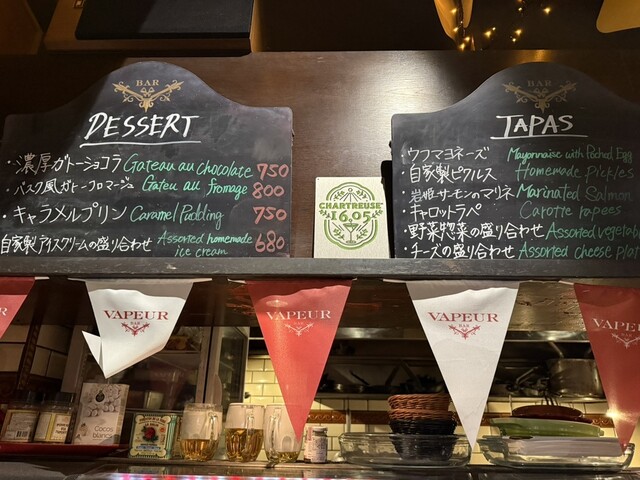 BAR
DESSERT
・濃厚ガトーショコラ Gateau au chocolate 750
・バスク風ガトーフロマージュ Gateu au fromage 800
・キャラメルプリン Caramel Pudding 750
自家製アイスクリームの盛り合わせ Assorted homemade ice cream 680
CHARTREUSE
1605
BAR
TAPAS
・ウフマヨネーズ Mayonnaise with Poched Egg
・自家製ピクルス Homemade pickles
・岩姫サーモンのマリネ Marinated Salmon
・キャロットラペ Carotte rapees
・野菜惣菜の盛り合わせ Assorted vegetab
・チーズの盛り合わせ Assorted cheese plat
VAPEUR
BAR
VAPEUR
BAR
VAPEUR
BAR
VAPEUR
Cocos
blancs